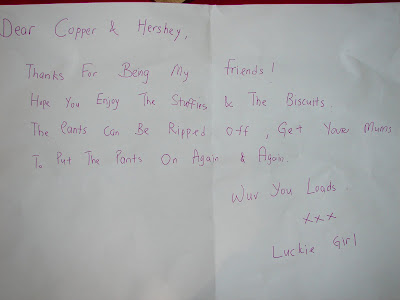 Dear Copper & Hershey,
Thanks For Being My friends!
Hope You Enjoy The Stuffies & The Biscuits.
The Pants Can Be Ripped Off, Get Your Mums
To Put The Pants On Again & Again.
Wuv You Loads.
xxx
Luckie Girl